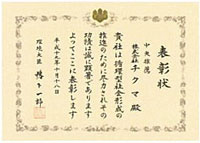 表彰状
株式会社 チクマ 殿
貴社は循環型社会形成の
推進のために尽力されその
功績は誠に顕著であります
よってここに表彰します
平成十九年十月十八日
環境大臣 鴨下一郎